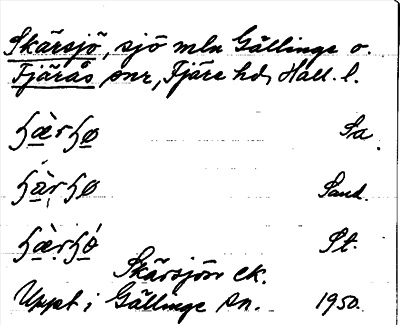 Skärsjö, sjö mln Gällinge o.
Fjärås snr, Fjäre hd, Hall. l.
ɧæ̀rɧø Sa.
ɧæ̀rɧø Sand.
ɧæ̀rɧǿ St.
Skärsjön ek.
Uppt i Gällinge sn. 1950.